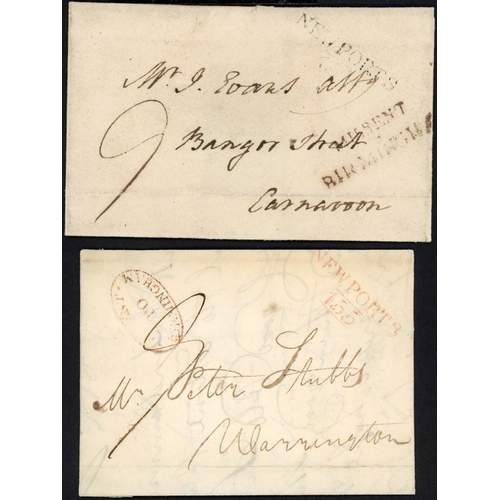 NEWPORT S
Mr. J. Evans Atty
9
MISSENT
Bangor Street
BIRMINGHAM
Carnarvoon
NEWPORT S
155
BIRMINGHAM
10
9
Mr. Peter Stubbs
Warrington